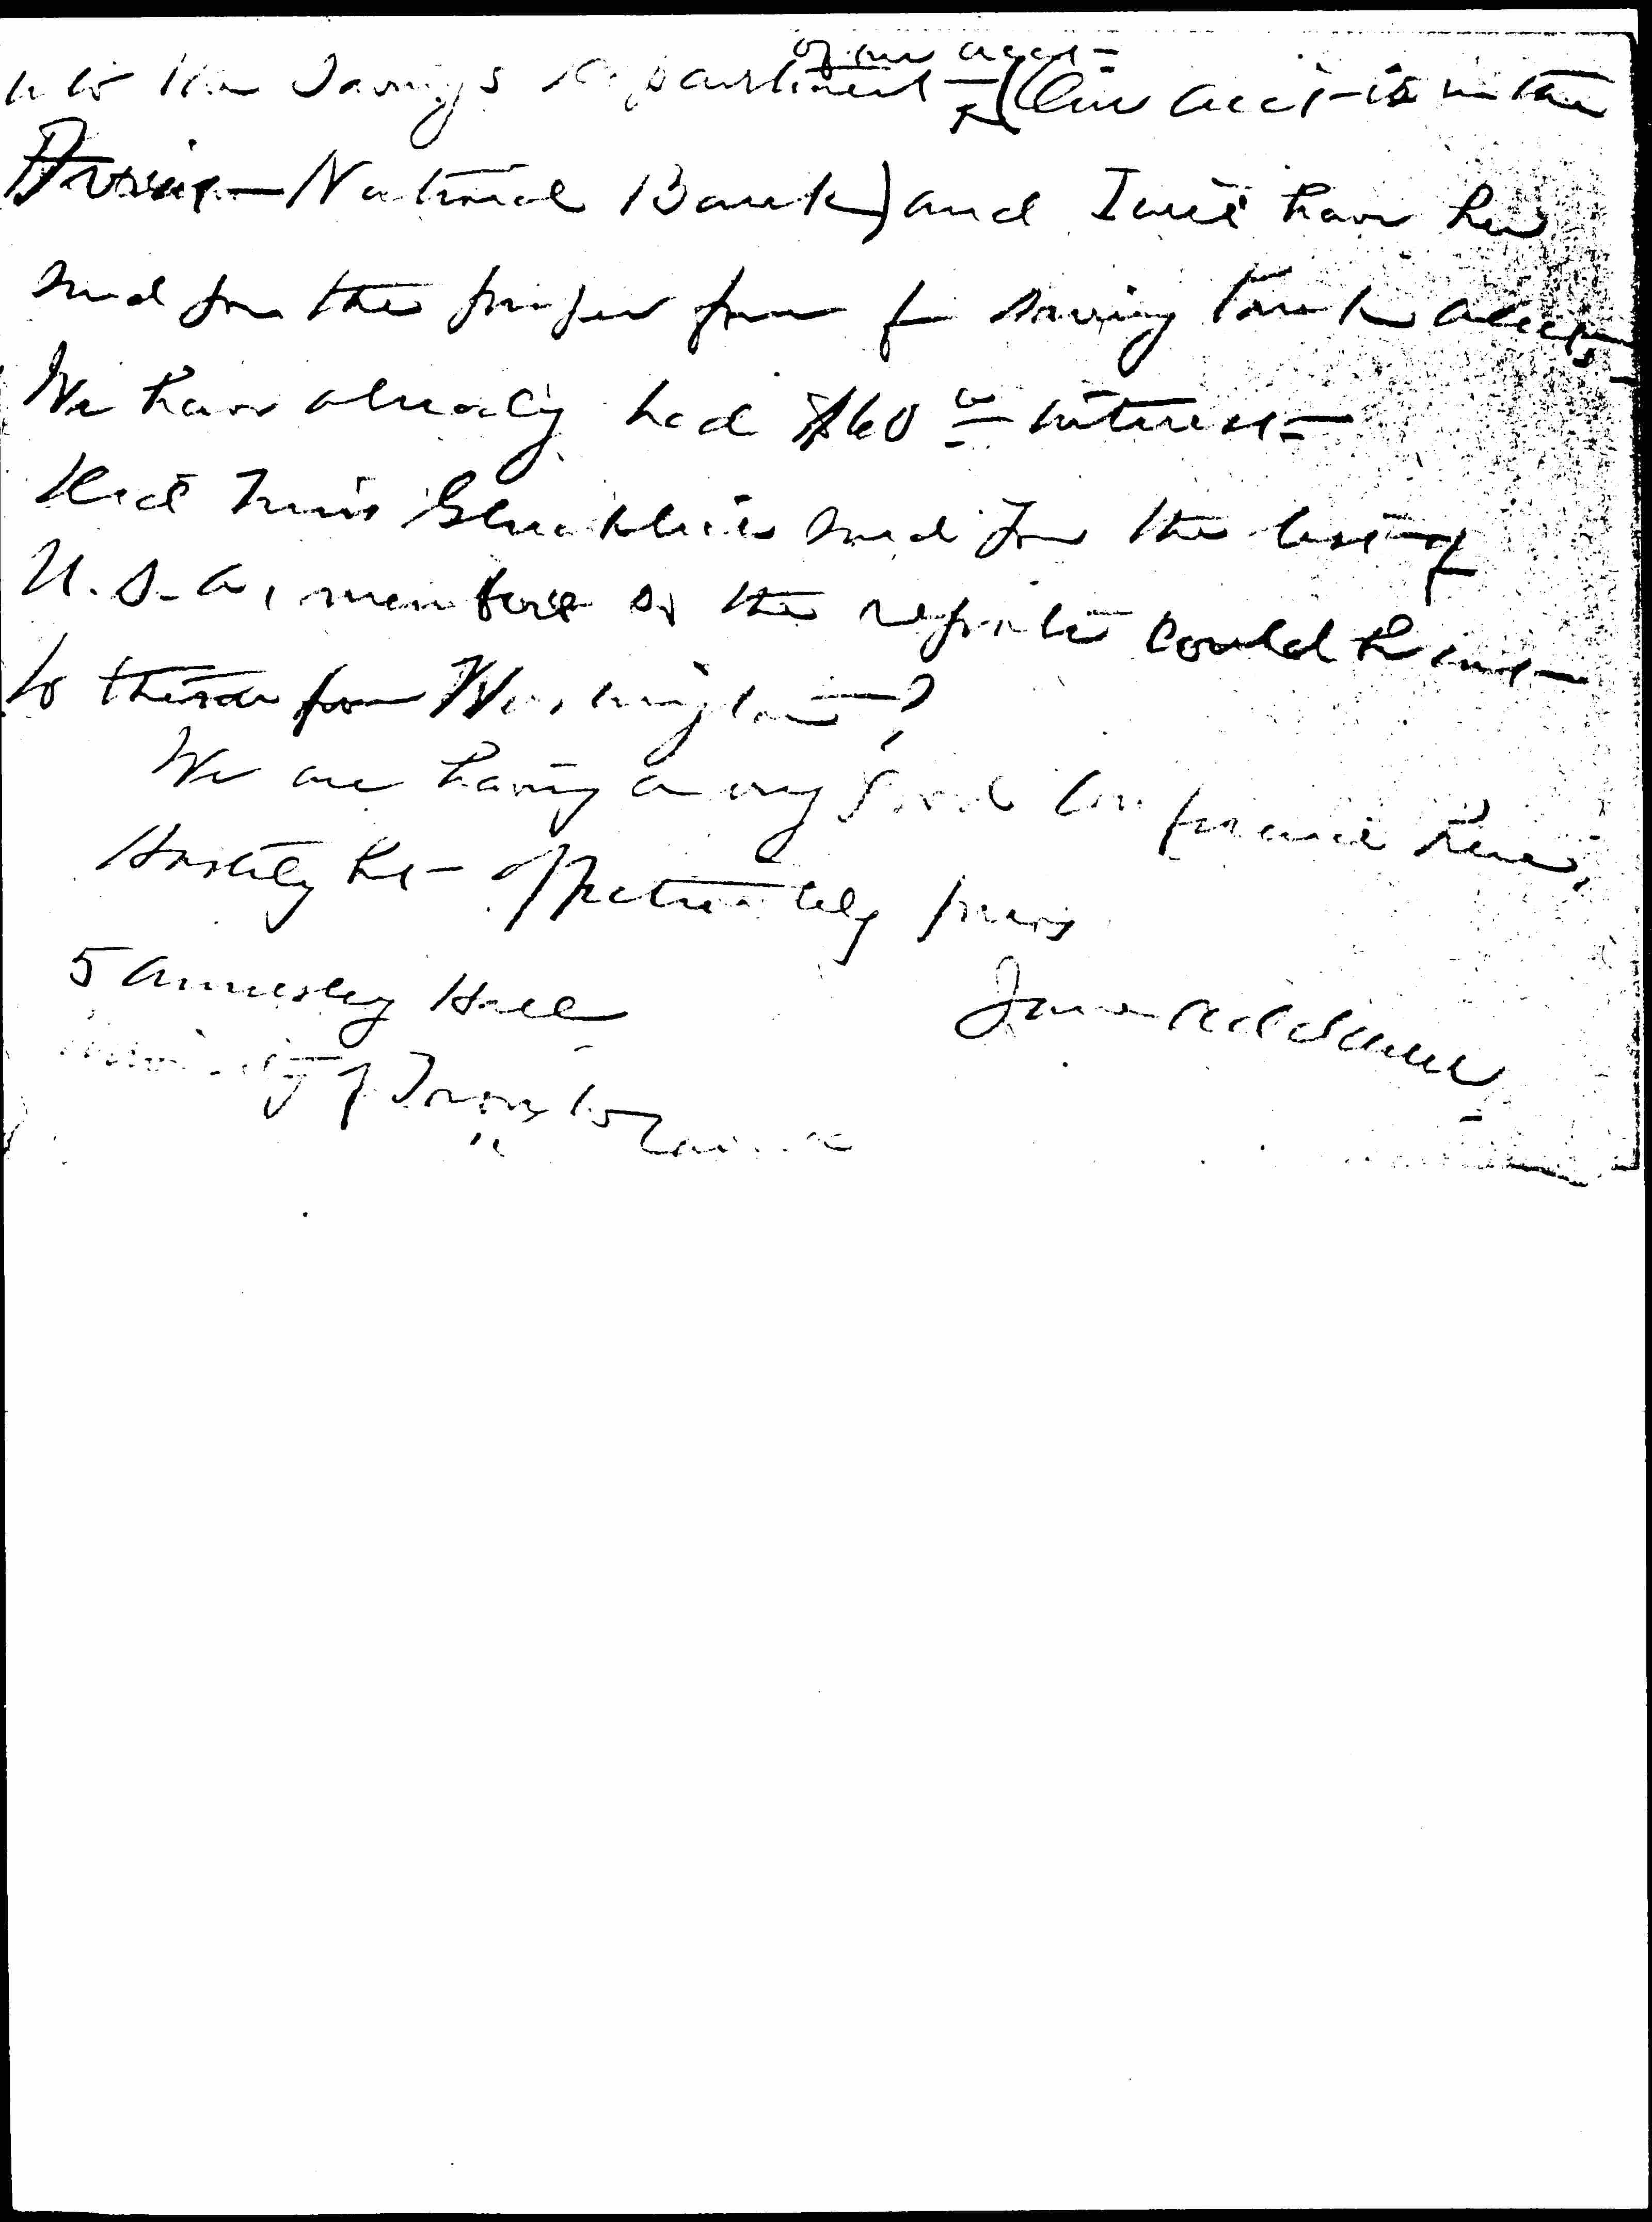 of our acct
into the Savings Department (Our acct is in the
National Bank) and I will have her
send you the proper form for saving bank accts
We have already had $60 00 interest
Did Miss send you the list of
U.S.A. members so the reports could be sent
to them from Washington?
We are having a very good conference here,
Hastily but affectionately yours
5 Annesley Hall
Jane Addams
University of Toronto
Canada